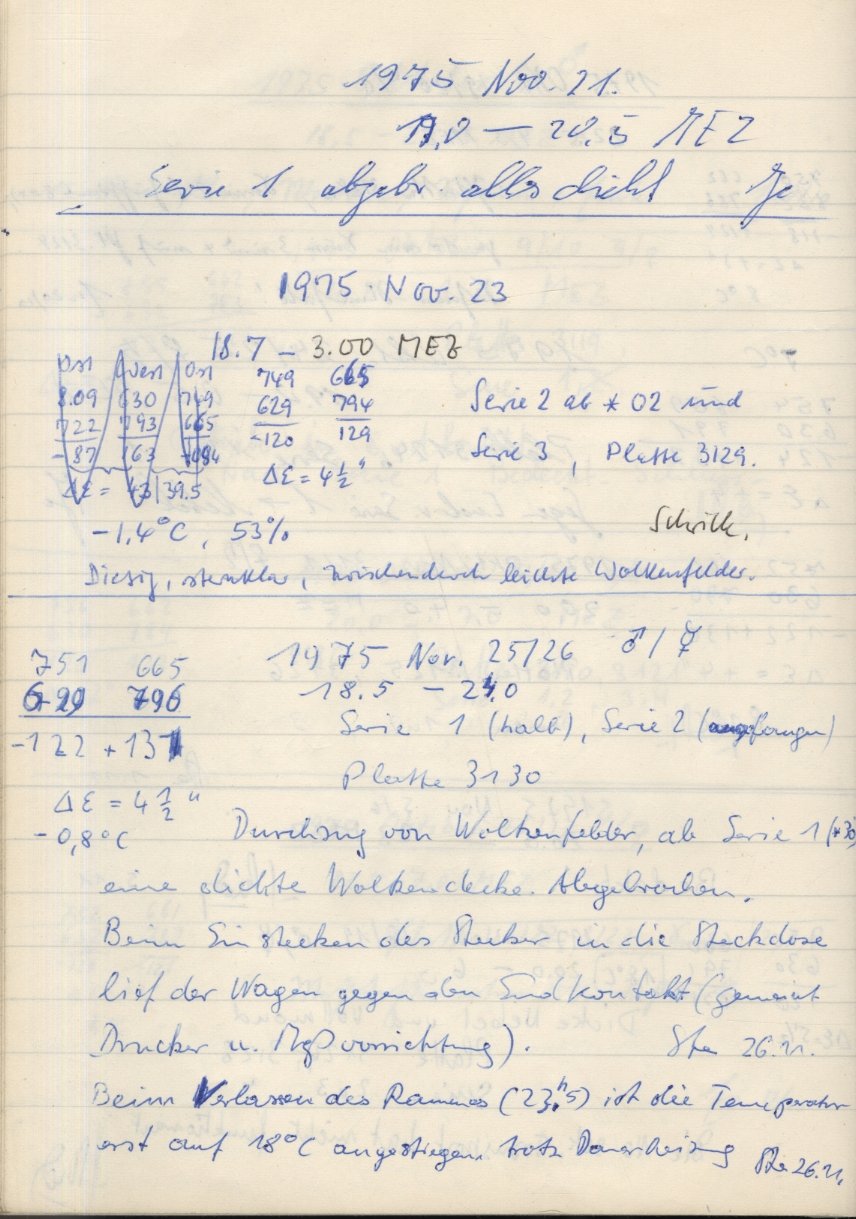 1975 Nov. 21.
17.0 — 20.5 MEZ
Serie 1 abgebr. alles dicht
1975 Nov. 23
18.7 — 3.00 MEZ
Ost West Ost
8.09 630 749
722 793 665
-87 163 -084
ΔE = 43 | 39.5
749 665
629 794
-120 129
ΔE = 4 1/2 "
Serie 2 ab * 02 und
Serie 3, Platte 3129.
-1,4°C, 53%
Schrick.
Diesig, sternklar, zwischendurch leichte Wolkenfelder.
1975 Nov. 25/26 ♂/☿
18.5 — 24.0
751 665
629 796
-122 +131
ΔE = 4 1/2 "
-0,8°C
Serie 1 (halb), Serie 2 (angefangen)
Platte 3130
Durchzug von Wolkenfelder, ab Serie 1
eine dichte Wolkendecke. Abgebrochen.
Beim Einstecken des Stecker in die Steckdose
lief der Wagen gegen den Endkontakt (gemeint
Drucker u. Meßvorrichtung). Ste 26.11.
Beim Verlassen des Raumes (23.ʰ5) ist die Temperatur
erst auf 18°C angestiegen. trotz Dauerheizung Ste 26.11.